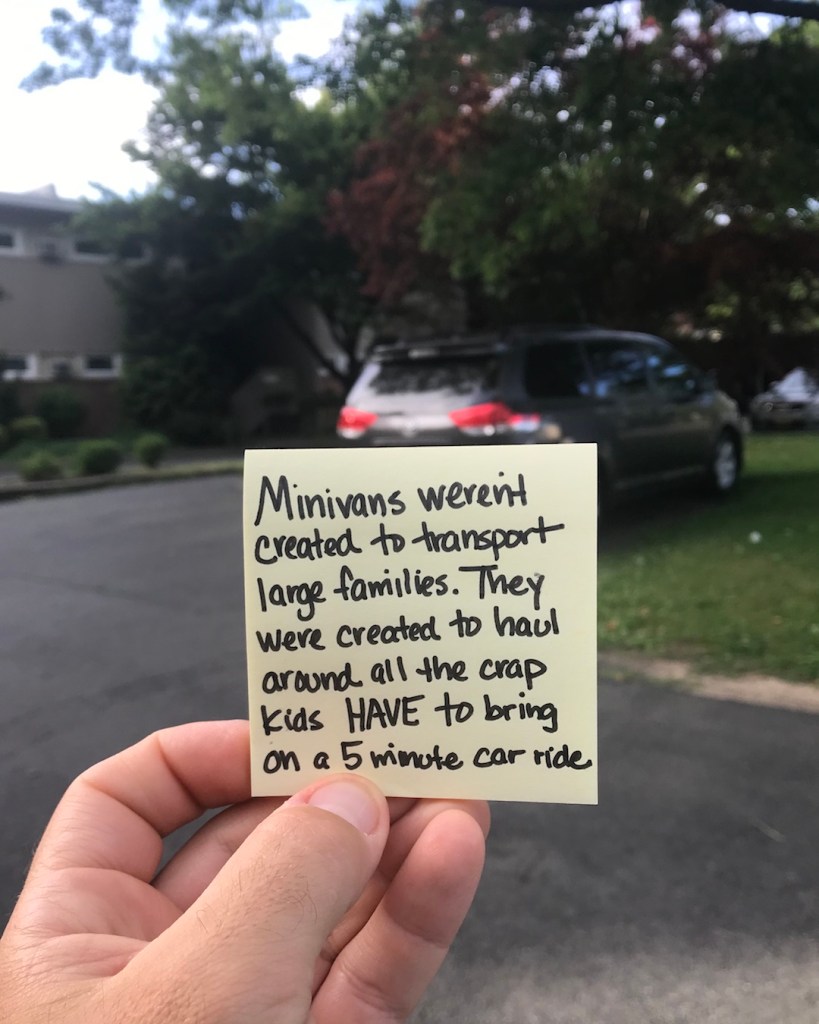 Minivans weren't
created to transport
large families. They
were created to haul
around all the crap
kids HAVE to bring
on a 5 minute car ride